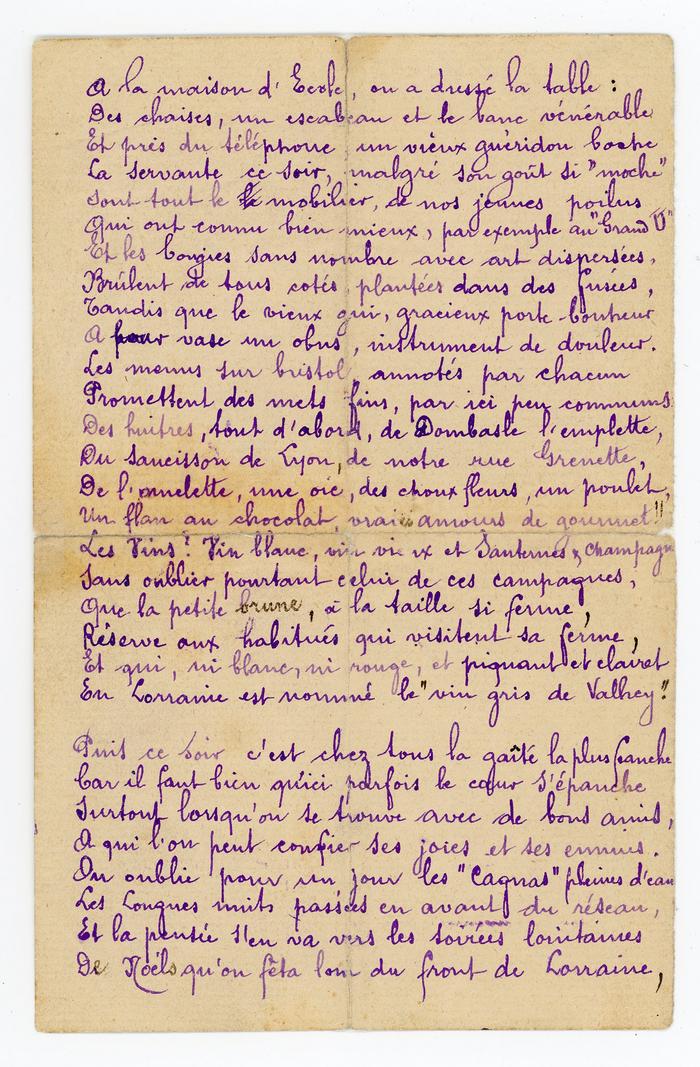 A la maison d'Ecole, on a dressé la table :
Des chaises, un escabeau et le banc vénérable
Et près du téléphone un vieux guéridon boche
La servante ce soir, malgré son goût si "moche"
Sont tout le mobilier, de nos jeunes poilus
Qui ont connu bien mieux, par exemple au "Grand U"
Et les bougies sans nombre avec art dispersées,
Brûlent de tous cotés, plantées dans des fusées,
Tandis que le vieux gui, gracieux porte-bonheur
A pour vase un obus, instrument de douleur.
Les menus sur bristol, annotés par chacun
Promettent des mets fins, par ici peu communs
Des huitres, tout d'abord, de Dombasle l'emplette,
Du saucisson de Lyon, de notre rue Grenette,
De l'omelette, une oie, des choux fleurs, un poulet,
Un flan au chocolat, vrais amours de gourmet!!
Les Vins! Vin blanc, vin vieux et Sauternes, champagne
Sans oublier pourtant celui de ces campagnes,
Que la petite brune, à la taille si ferme,
Réserve aux habitués qui visitent sa ferme,
Et qui, ni blanc, ni rouge, et piquant et clairet
En Lorraine est nommé le "vin gris de Valhey".
Puis ce soir c'est chez tous la gaîté la plus franche
Car il faut bien qu'ici parfois le cœur s'épanche
Surtout lorsqu'on se trouve avec de bons amis,
A qui l'on peut confier ses joies et ses ennuis.
On oublie pour un jour les "Cagnas" pleines d'eau
Les Longues nuits passées en avant du réseau,
Et la pensée s'en va vers les soirées lointaines
De Noëls qu'on fêta loin du front de Lorraine,